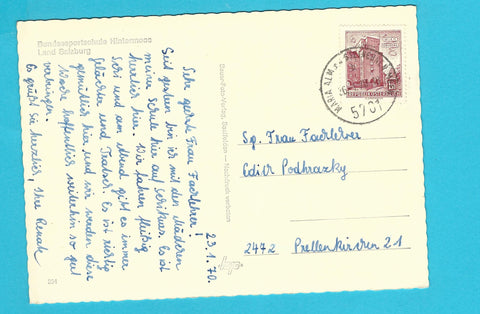 Bundessportschule Hintermoos
Land Salzburg
23.1.70.
Sehr geehrte Frau Fachlehrer!
Seit gestern bin ich mit den Mädchen
meiner Schule hier auf Schikurs. Es ist
herrlich hier. Wir fahren fleißig
Schi und am Abend gibt es immer
Gelächter und Tratsch. Es ist richtig
gemütlich hier und wir werden diese
Woche hoffentlich weiterhin so gut
verbringen.
Es grüßt Sie herzlich, Ihre Renate
201
Nachdruck verboten
MARIA ALM
5761
REPUBLIK ÖSTERREICH
Sg. Frau Fachlehrer
Edith Podhrazky
2472 Prellenkirchen 21